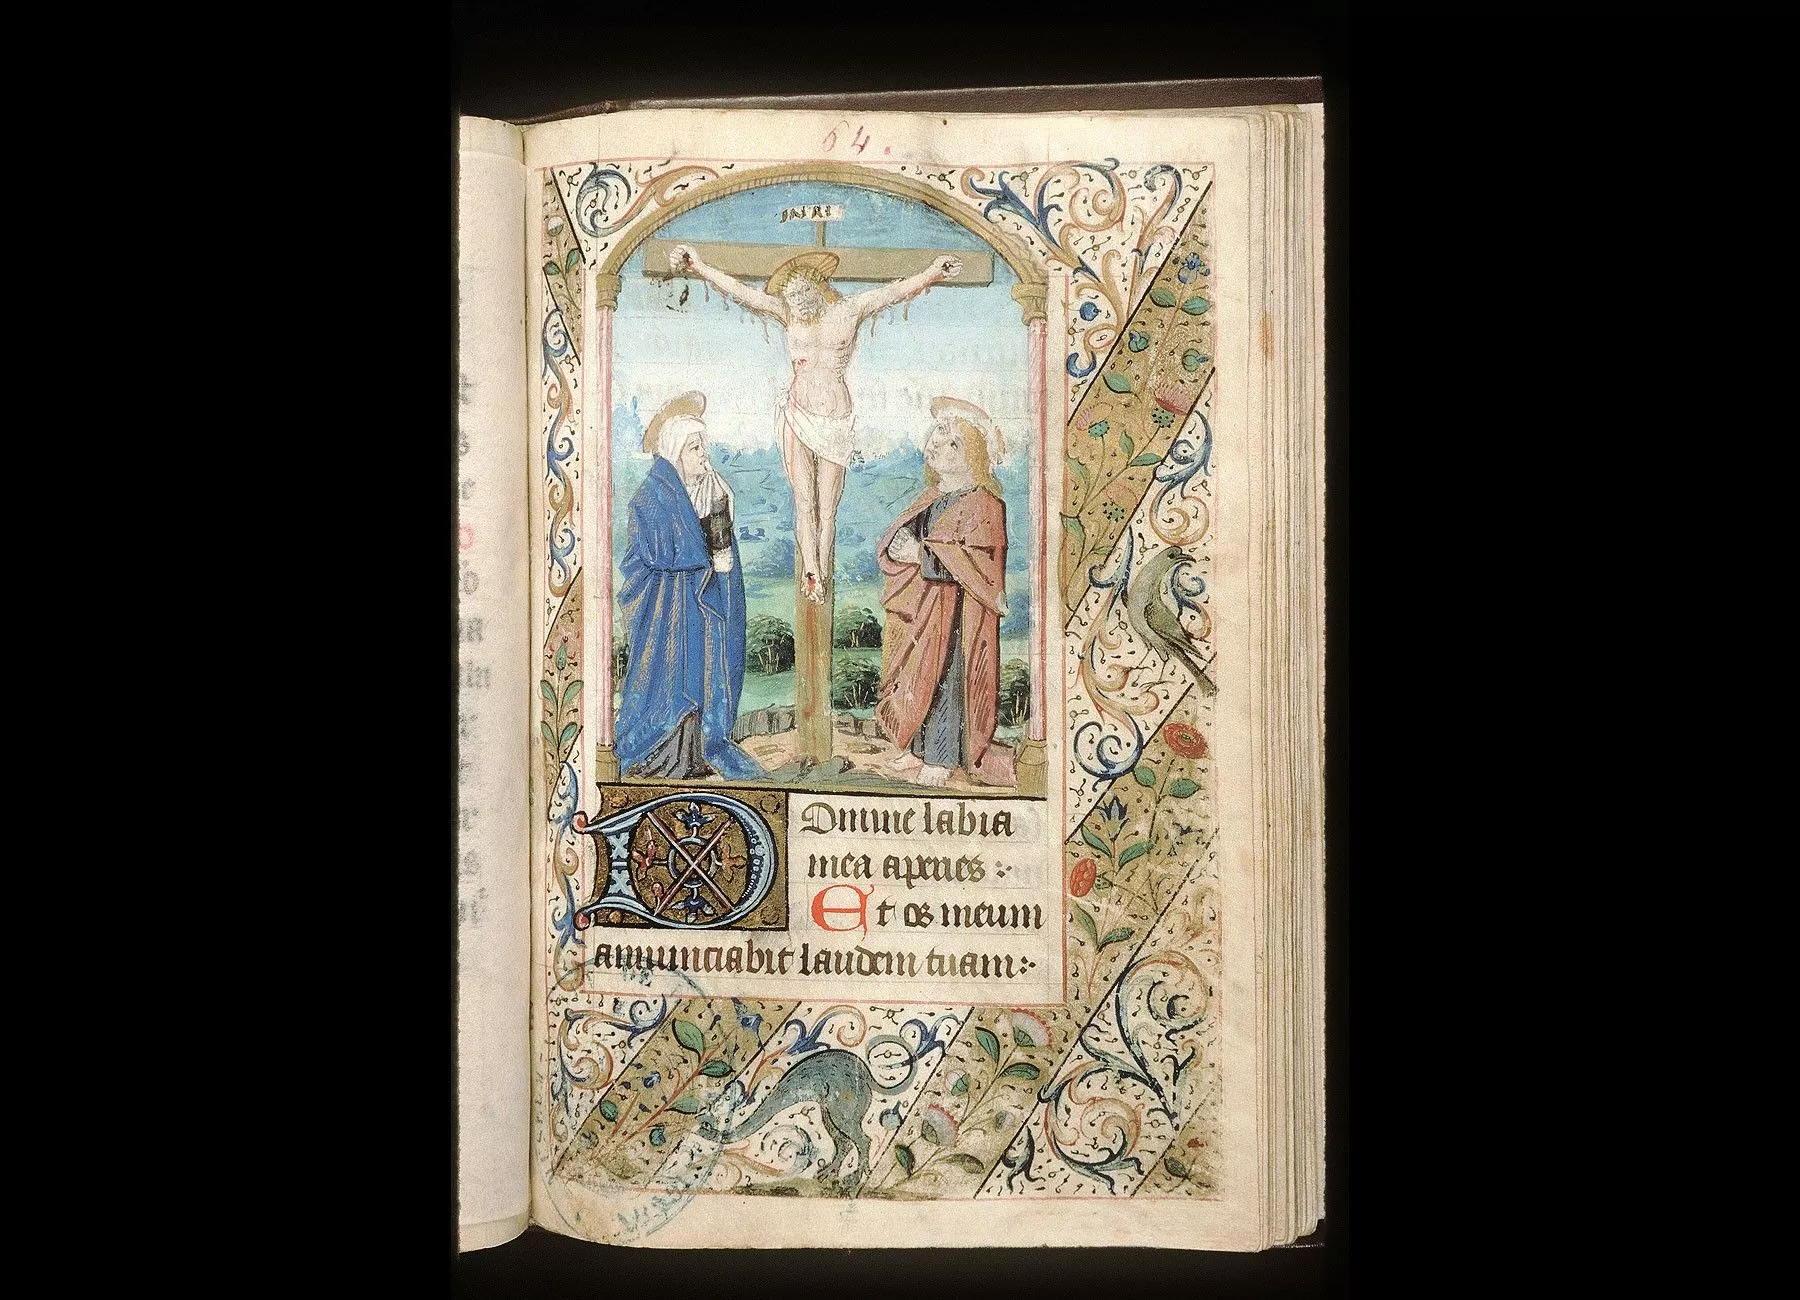 64.
INRI
Domine labia
mea aperies :
Et os meum
annunciabit laudem tuam :